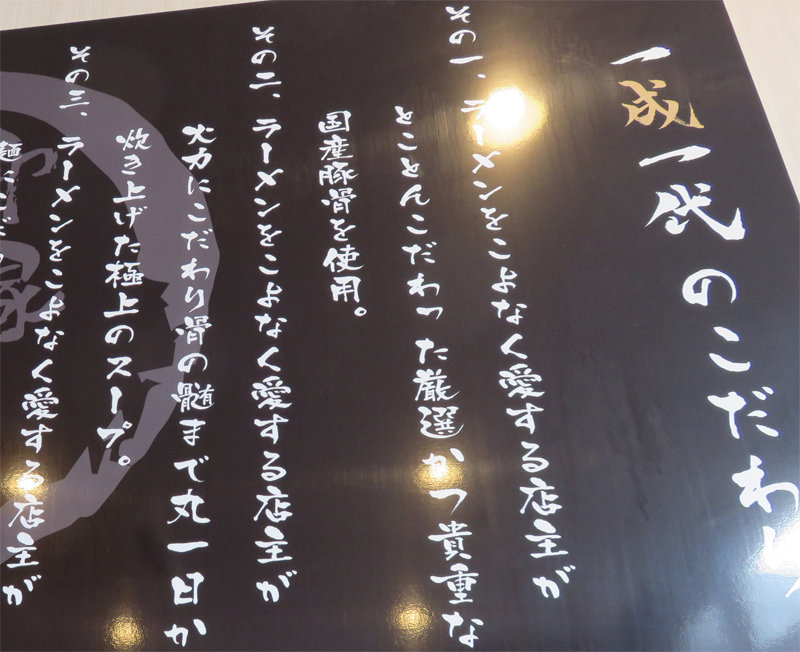 一成一代のこだわり
その一、ラーメンをこよなく愛する店主が
とことんこだわった厳選かつ貴重な
国産豚骨を使用。
その二、ラーメンをこよなく愛する店主が
火力にこだわり骨の髄まで丸一日か
炊き上げた極上のスープ。
その三、ラーメンをこよなく愛する店主が
麺にこだ